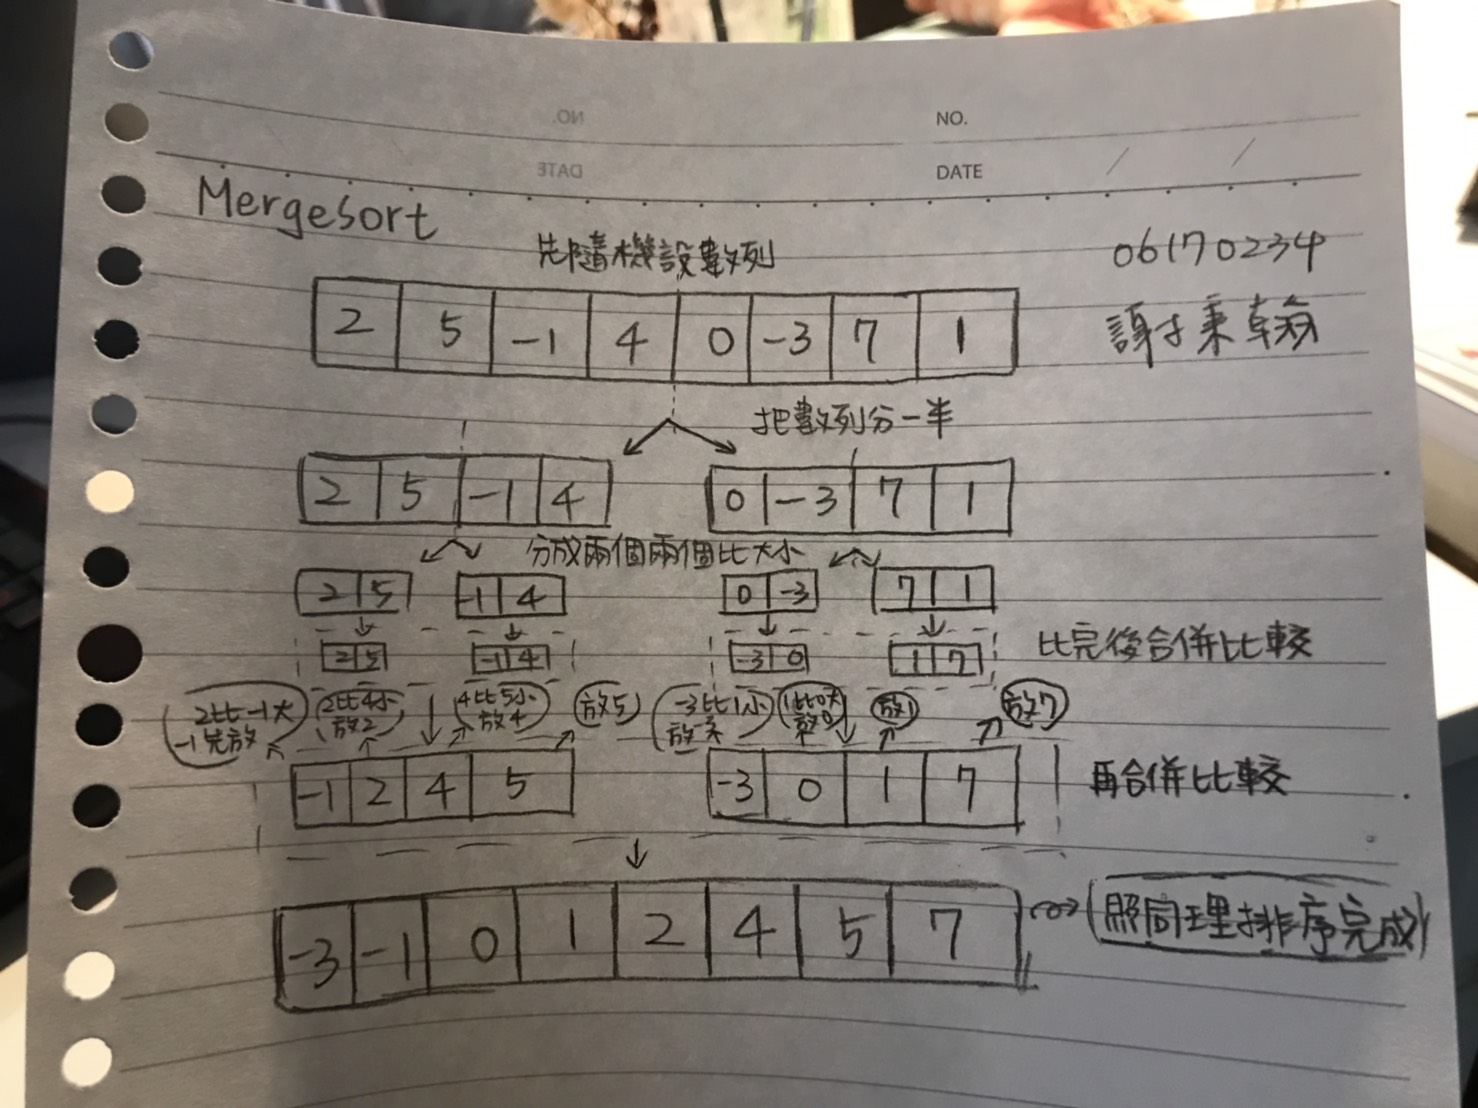 NO.
DATE
Mergesort
先隨機設數列
06170234
謝秉翰
2 5 -1 4 0 -3 7 1
把數列分一半
2 5 -1 4
0 -3 7 1
分成兩個兩個比大小
2 5
-1 4
0 -3
7 1
2 5
-1 4
-3 0
1 7
比完後合併比較
2比-1大
-1先放
2比4小
放2
4比5小
放4
放5
-3比1小
放-3
1比0大
放0
放1
放7
-1 2 4 5
-3 0 1 7
再合併比較
-3 -1 0 1 2 4 5 7
照同理排序完成